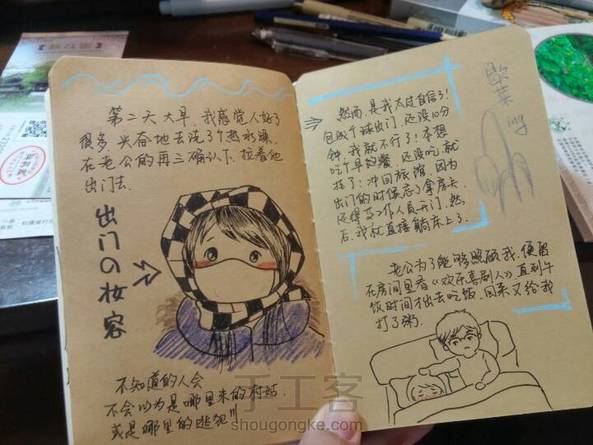 第二天大早，我感觉人好了
很多，兴奋地去洗了个热水澡，
在老公的再三确认下，拉着他
出门去.
出门の妆容
不知道的人会
不会以为是哪里来的村姑.
或是哪里的逃犯!!
然而，是我太过自信了！
包成个球出门，还没10分
钟，我就不行了！本想
吃个早的餐，还没吃就
挂了！冲回旅馆，因为
出门的时候忘了拿房卡
还得等工作人员开门，然
后，我就直接躺床上了.
歇菜
老公为了能够照顾我，便留
在房间里看《欢乐喜剧人》直到午
饭时间才出去吃饭，回来又给我
打了粥.
手工客
shougongke.com